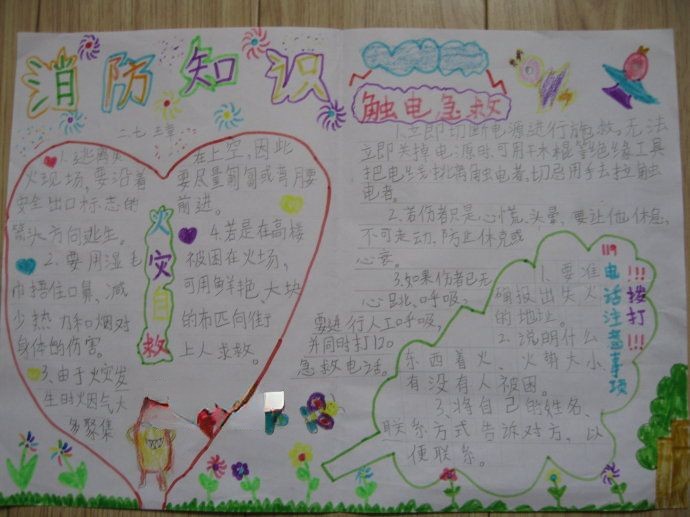 消防知识
二七 王章
1.逃离火
火现场，要沿着
安全出口标志的
箭头方向逃生。
2.要用湿毛
巾捂住口鼻、减
少热力和烟对
身体的伤害。
3.由于火灾发
生时烟气大
多聚集
在上空，因此
要尽量匍匐或弯腰
前进。
4.若是在高楼
被困在火场，
可用鲜艳、大块
的布匹向街
上人求救。
火灾自救
触电急救
1.立即切断电源进行施救，无法
立即关掉电源时，可用干木棍等绝缘工具
把电线挑离触电者，切忌用手去拉触
电者。
2.若伤者只是心慌、头晕，要让他休息，
不可走动，防止休克或
心衰。
3.如果伤者已无
心跳、呼吸，
要进行人工呼吸，
并同时打120
急救电话。
拨打!!!
119
电话注意事项
!!!
1.要准
确报出失火
的地址。
2.说明什么
东西着火、火势大小、
有没有人被困。
3.将自己的姓名、
联系方式告诉对方，以
便联系。